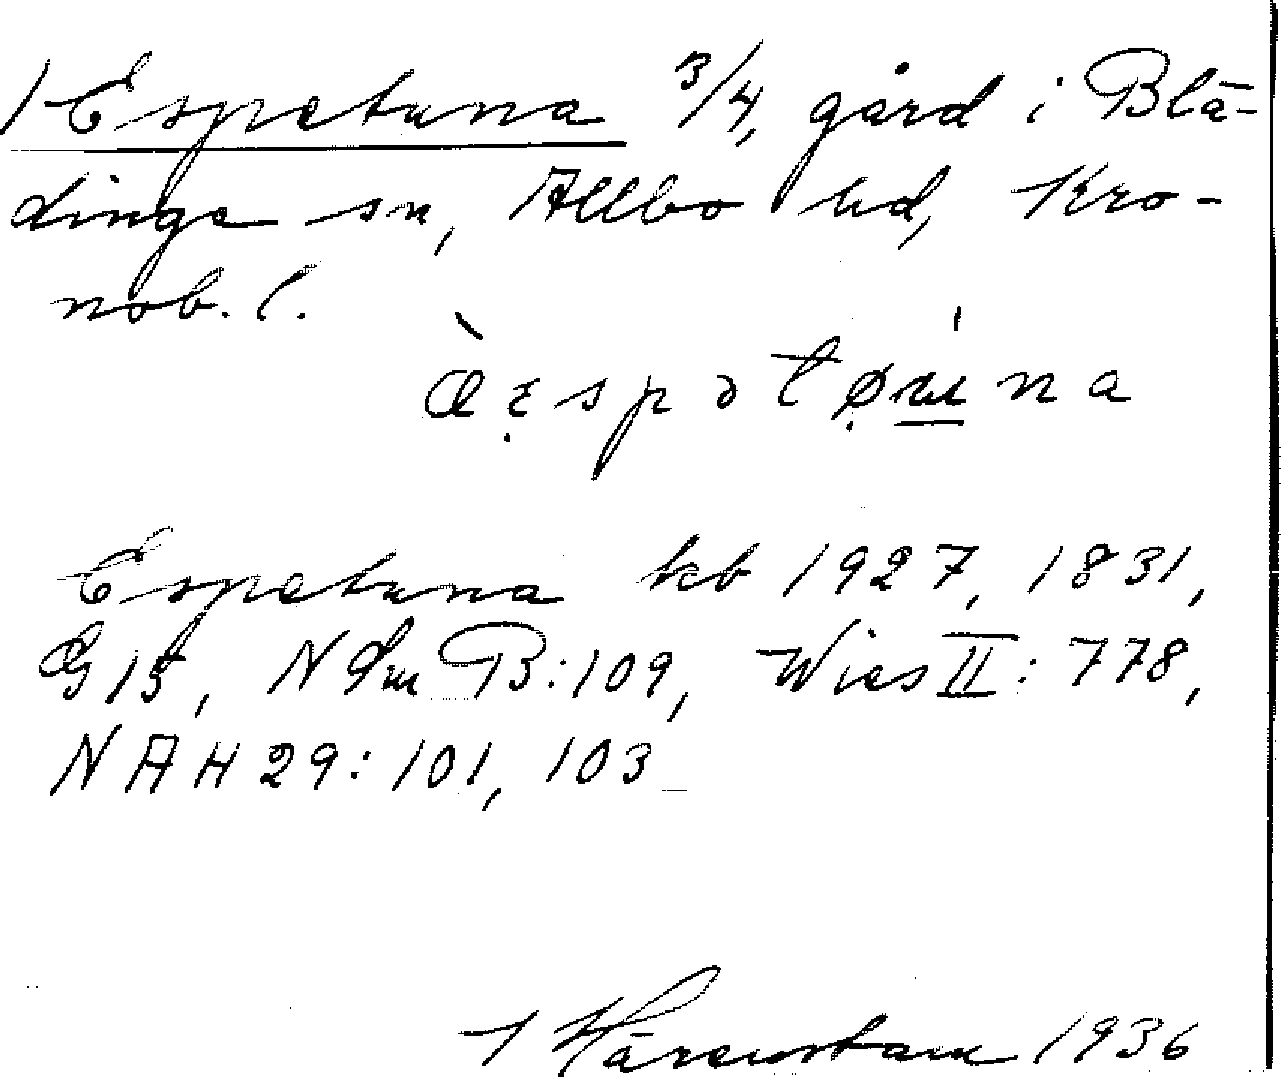 1 Espetuna 3/4, gård i Blä-
dinge sn, Allbo hd, Kro-
nob. l.
Espetuna kb 1927, 1831,
G 15, N Sm B:109, Wies II: 778,
NAH 29: 101, 103
1936